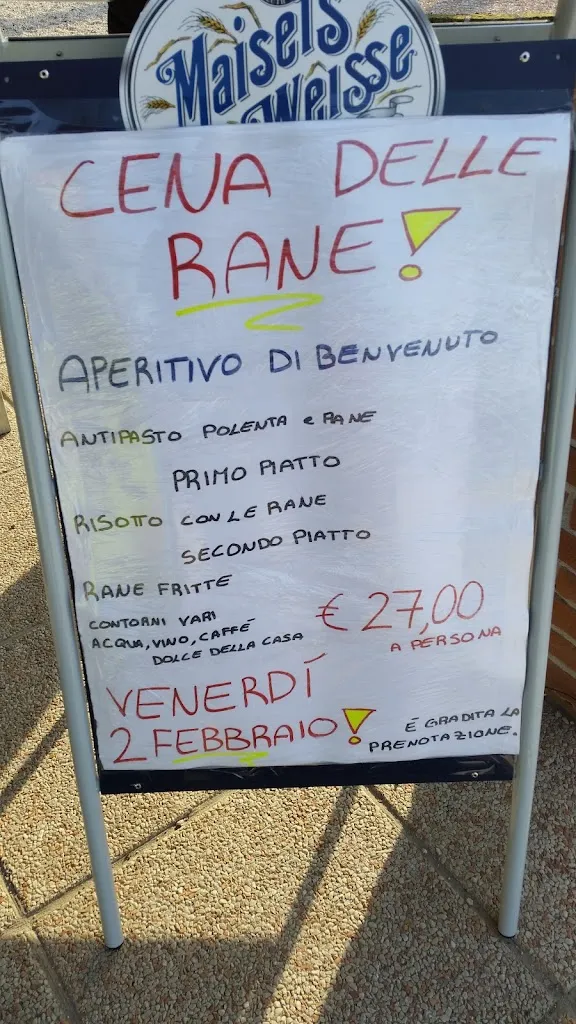 Maisel's
Weisse
CENA DELLE
RANE!
APERITIVO DI BENVENUTO
ANTIPASTO POLENTA e RANE
PRIMO PIATTO
RISOTTO CON LE RANE
SECONDO PIATTO
RANE FRITTE
CONTORNI VARI
ACQUA, VINO, CAFFÉ
DOLCE DELLA CASA
€ 27,00
A PERSONA
VENERDÍ
2 FEBBRAIO!
É GRADITA LA
PRENOTAZIONE.